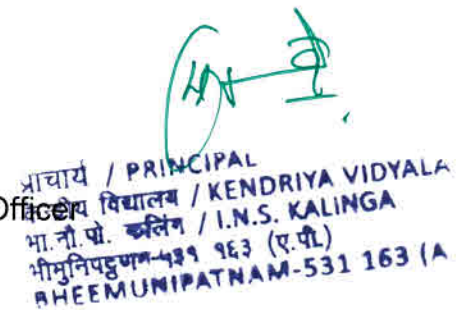 प्राचार्य / PRINCIPAL
Officer विद्यालय / KENDRIYA VIDYALA
भा.नौ.पो. कलिंग / I.N.S. KALINGA
भीमुनिपट्टणम-५३१ १६३ (ए.पी.)
BHEEMUNIPATNAM-531 163 (A